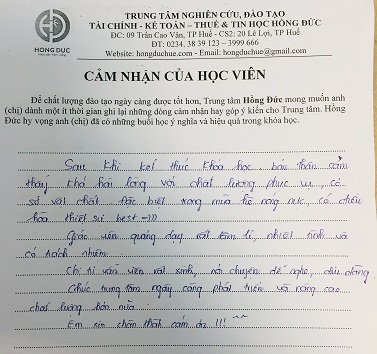 TRUNG TÂM NGHIÊN CỨU, ĐÀO TẠO
TÀI CHÍNH - KẾ TOÁN – THUẾ & TIN HỌC HỒNG ĐỨC
ĐC: 09 Trần Cao Vân, TP Huế - CS2: 20 Lê Lợi, TP Huế
ĐT: 0234. 38 39 123 – 3999 666
Website: hongduchue.com - Email: hongduchue@gmail.com
HONG DUC
CẢM NHẬN CỦA HỌC VIÊN
Để chất lượng đào tạo ngày càng được tốt hơn, Trung tâm Hồng Đức mong muốn anh
(chị) dành một ít thời gian ghi lại những dòng cảm nhận hay góp ý kiến cho Trung tâm. Hồng
Đức hy vọng anh (chị) đã có những buổi học ý nghĩa và hiệu quả trong khóa học.
Sau khi kết thúc khóa học, bản thân cảm
thấy khá hài lòng với chất lượng phục vụ, cơ
sở vật chất. Đặc biệt trong mùa hè nóng nực, có điều
hòa thiệt sự best =)))
Giáo viên giảng dạy rất tâm lí, nhiệt tình và
có trách nhiệm.
Chị tư vấn viên rất xinh, nói chuyện dễ nghe, dịu dàng
Chúc trung tâm ngày càng phát triển và nâng cao
chất lượng hơn nữa.
Em xin chân thành cảm ơn !!! ^^